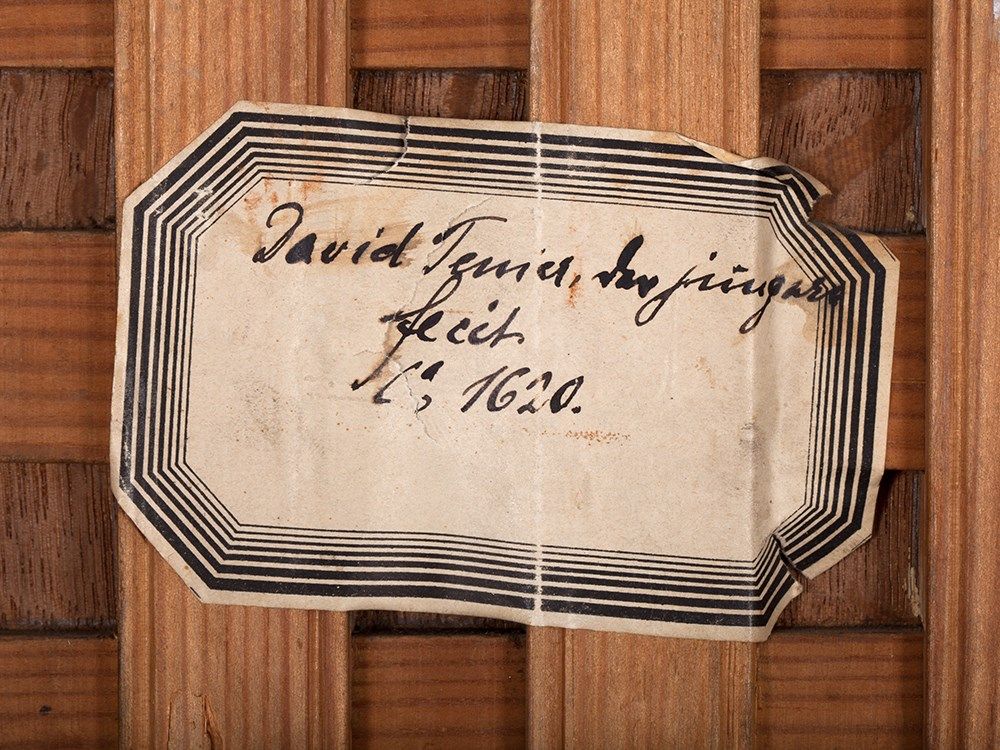 David Teniers, der jüngere
fecit
Ca, 1620.